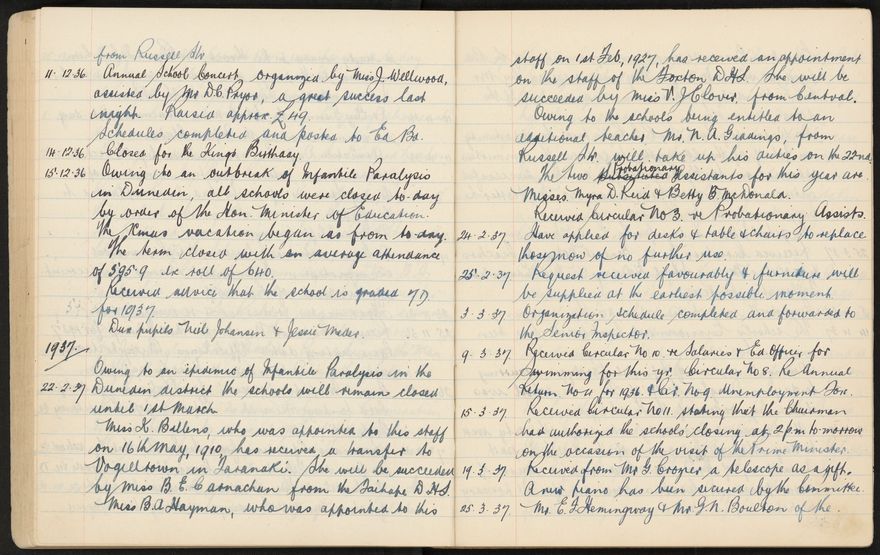 from Russell Str
11.12.36 Annual School Concert, organized by Miss J. Wellwood,
assisted by Mr D.C. Pryor, a great success last
night. Raised approx. £49.
Schedules completed and posted to Ed Bd.
14.12.36 Closed for the King's Birthday
15.12.36 Owing to an outbreak of Infantile Paralysis
in Dunedin, all schools were closed to-day
by order of the Hon. Minister of Education.
The Xmas vacation began as from to-day.
The term closed with an average attendance
of 595.9 ex roll of 640.
Received advice that the school is graded 7D.
for 1937
Dux pupils Neil Johansen & Jessie Meder.
1937.
Owing to an epidemic of Infantile Paralysis in the
22-2-37 Dunedin district the schools will remain closed
until 1st March
Miss K. Ballens, who was appointed to this staff
on 16th May, 1910, has received a transfer to
Vogeltown in Taranaki. She will be succeeded
by Miss B. E. Carnachan from the Taihape D.H.S.
Miss B.A. Hayman, who was appointed to this
staff on 1st Feb, 1927, has received an appointment
on the staff of the Foxton D.H.S. She will be
succeeded by Miss V. J. Clover, from Central.
Owing to the schools being entitled to an
additional teacher Mr. N. A. Giddings, from
Russell Str. will take up his duties on the 22nd
The two Probationary Assistants for this year are
Misses Myra D. Reid & Betty B. McDonald.
Received Circular No 3. re Probationary Assists.
24.2.37 Have applied for desks & table & chairs to replace
those now of no further use.
25.2.37 Request received favourably & furniture will
be supplied at the earliest possible moment
3.3.37 Organization schedule completed and forwarded to
the Senior Inspector.
9.3.37 Received Circular No 10. re Salaries & Ed Officer for
Swimming for this yr. Circular No 8. Re Annual
Return No 11. for 1936. & Cir. No 9. Unemployment
15.3.37 Received Circular No 11. stating that the Chairman
had authorized the schools' closing at 2pm to-morrow
on the occasion of the visit of the Prime Minister.
19.3.37 Received from Mr G. Croper a telescope as a gift.
A new piano has been secured by the Committee.
25.3.37 Mr. E. J. Hemingway & Mr. G. N. Boulton of the